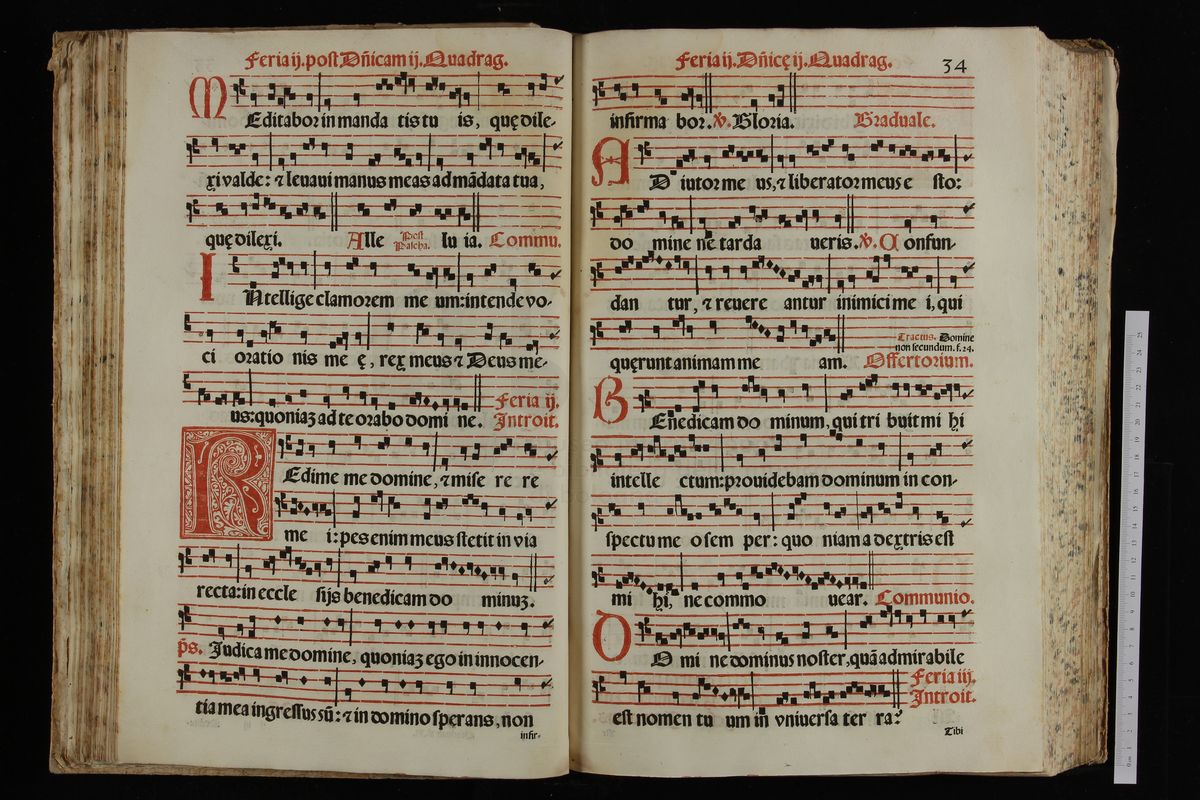 Feria ij. post Dñicam ij. Quadrag.
MEditabor in manda tis tu is, quę dile-
xi valde: ⁊ leuaui manus meas ad mãdata tua,
quę dilexi. Alle Post Pascha. lu ia. Commu.
INtellige clamorem me um: intende vo-
ci oratio nis me ę, rex meus ⁊ Deus me-
us: quoniaz ad te orabo domi ne. Feria ij.
Introit.
REdime me domine, ⁊ mise re re
me i: pes enim meus stetit in via
recta: in eccle sijs benedicam do minuz.
p̃s. Judica me domine, quoniaz ego in innocen-
tia mea ingressus sũ: ⁊ in domino sperans, non
infir-
Feria ij. Dñicę ij. Quadrag. 34
infirma bor. ℣. Gloria. Graduale.
AD iutor me us, ⁊ liberator meus e sto:
do mine ne tarda ueris. ℣. Confun-
dan tur, ⁊ reuere antur inimici me i, qui
Tractus. Domine
non secundum. f. 24.
quęrunt animam me am. Offertorium.
BEñedicam do minum, qui tri buit mi hi
intelle ctum: prouidebam dominum in con-
spectu me o sem per: quo niam a dextris est
mi hi, ne commo uear. Communio.
DO mi ne dominus noster, quã admirabile
Feria iij.
Introit.
est nomen tu um in vniuersa ter ra?
Tibi